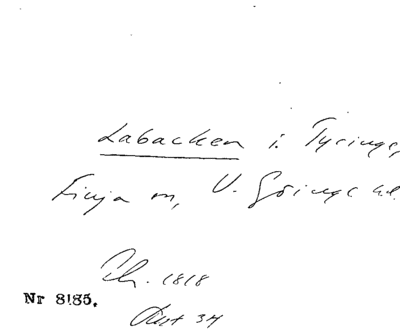 Labacken i Tyringe,
Finja sn, V. Göinge hd.
Th. 1818
Nr 8185.
Aust 34